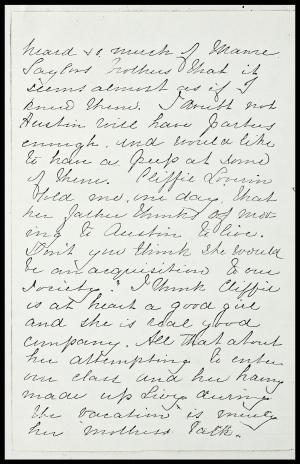 heard so much of Mame
Taylors brothers that it
seems almost as if I
knew them. I doubt not
Austin will have parties
enough, and would like
to have a peep at some
of them. Cliffie
told me, one day, that
her father thinks of mov-
ing to Austin to live.
Don't you think she would
be an acquisition to our
society? I think Cliffie
is at heart a good girl
and she is real good
company. All that about
her attempting to enter
our class and her having
made up Livy during
the vacation is merely
her mothers talk.